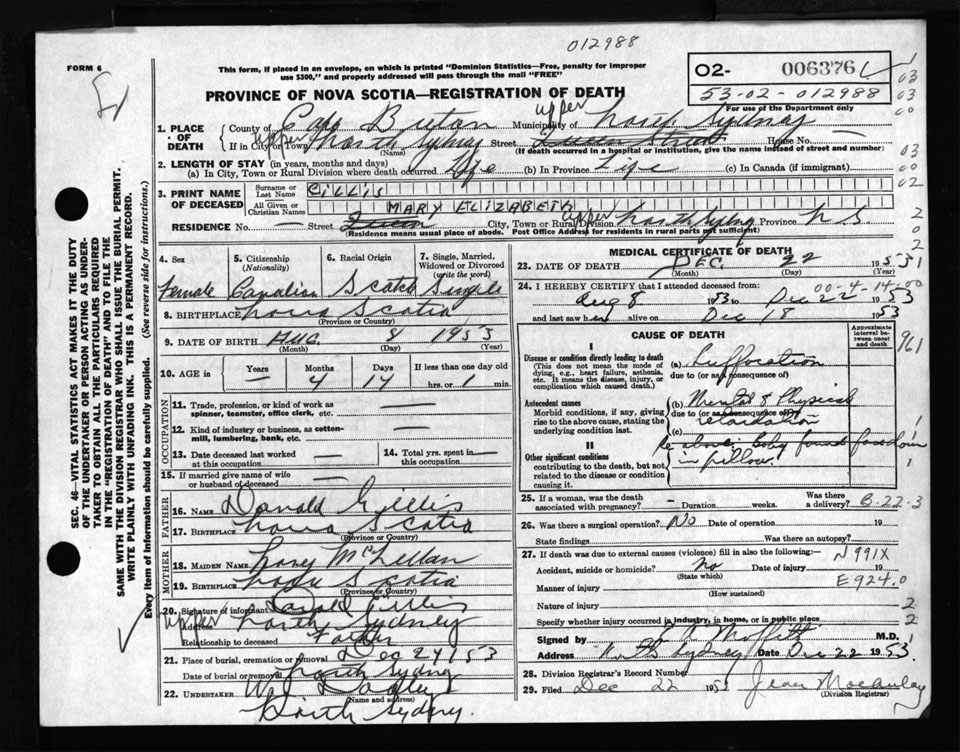 012988
FORM 6
This form, if placed in an envelope, on which is printed "Dominion Statistics—Free, penalty for improper
use $300," and properly addressed will pass through the mail "FREE"
02- 006376
53-02-012988
For use of the Department only
PROVINCE OF NOVA SCOTIA—REGISTRATION OF DEATH
1. PLACE OF DEATH { County of Cape Breton Municipality of upper North Sydney
If in City or Town upper North Sydney Street Queen Street House No. —
(Name) (If death occurred in a hospital or institution, give the name instead of street and number)
2. LENGTH OF STAY (in years, months and days)
(a) In City, Town or Rural Division where death occurred Life (b) In Province Life (c) In Canada (if immigrant)
3. PRINT NAME OF DECEASED { Surname or Last Name GILLIS
All Given or Christian Names MARY ELIZABETH
RESIDENCE No. — Street Queen City, Town or Rural Division upper North Sydney Province N.S.
(Residence means usual place of abode. Post Office Address for residents in rural parts not sufficient)
4. Sex Female
5. Citizenship (Nationality) Canadian
6. Racial Origin Scotch
7. Single, Married, Widowed or Divorced (write the word) Single
8. BIRTHPLACE Nova Scotia
(Province or Country)
9. DATE OF BIRTH AUG. 8 1953
(Month) (Day) (Year)
10. AGE in { Years — Months 4 Days 14 If less than one day old
hrs. or min.
OCCUPATION
11. Trade, profession, or kind of work as spinner, teamster, office clerk, etc. —
12. Kind of industry or business, as cotton-mill, lumbering, bank, etc. —
13. Date deceased last worked at this occupation —
14. Total yrs. spent in this occupation —
15. If married give name of wife or husband of deceased —
FATHER
16. Name Donald Gillis
17. Birthplace Nova Scotia
(Province or Country)
MOTHER
18. MAIDEN NAME McLellan
19. BIRTHPLACE Nova Scotia
(Province or Country)
20. Signature of informant Donald Gillis
Address upper North Sydney
Relationship to deceased Father
21. Place of burial, cremation or removal Dec 24 1953
Date of burial or removal North Sydney
22. UNDERTAKER W. J. Dooley
(Name and address)
North Sydney.
MEDICAL CERTIFICATE OF DEATH
23. DATE OF DEATH DEC. 22 1953
(Month) (Day) (Year)
00-4-14-00
24. I HEREBY CERTIFY that I attended deceased from:
Aug 8 1953 to Dec 22 1953
and last saw her alive on Dec 18 1953
CAUSE OF DEATH
Approximate interval between onset and death
I
Disease or condition directly leading to death
(This does not mean the mode of dying, e.g., heart failure, asthenia, etc. It means the disease, injury, or complication which caused death.)
(a) Suffocation
due to (or as a consequence of)
Antecedent causes
Morbid conditions, if any, giving rise to the above cause, stating the underlying condition last.
(b) Mental & Physical
due to (or as a consequence of)
retardation
(c)
Re above: Baby found face down
in pillow.
II
Other significant conditions
contributing to the death, but not related to the disease or condition causing it.
961
25. If a woman, was the death associated with pregnancy? – Duration weeks. Was there a delivery? B-22-3
26. Was there surgical operation? No Date of operation 19
State findings Was there an autopsy?
27. If death was due to external causes (violence) fill in also the following:— N991X
Accident, suicide or homicide? No Date of injury 19
(State which) E924.0
Manner of injury
(How sustained)
Nature of injury
Specify whether injury occurred in industry, in home, or in public place
Signed by Moffitt M.D.
Address North Sydney Date Dec 22 1953.
28. Division Registrar's Record Number
29. Filed Dec 22 1953 Jean Macaulay
(Division Registrar)
SEC. 46—VITAL STATISTICS ACT MAKES IT THE DUTY
OF THE UNDERTAKER OR PERSON ACTING AS UNDER-
TAKER TO OBTAIN ALL THE PARTICULARS REQUIRED
IN THE "REGISTRATION OF DEATH" AND TO FILE THE
SAME WITH THE DIVISION REGISTRAR WHO SHALL ISSUE THE BURIAL PERMIT.
WRITE PLAINLY WITH UNFADING INK. THIS IS A PERMANENT RECORD.
Every item of information should be carefully supplied. (See reverse side for instructions.)